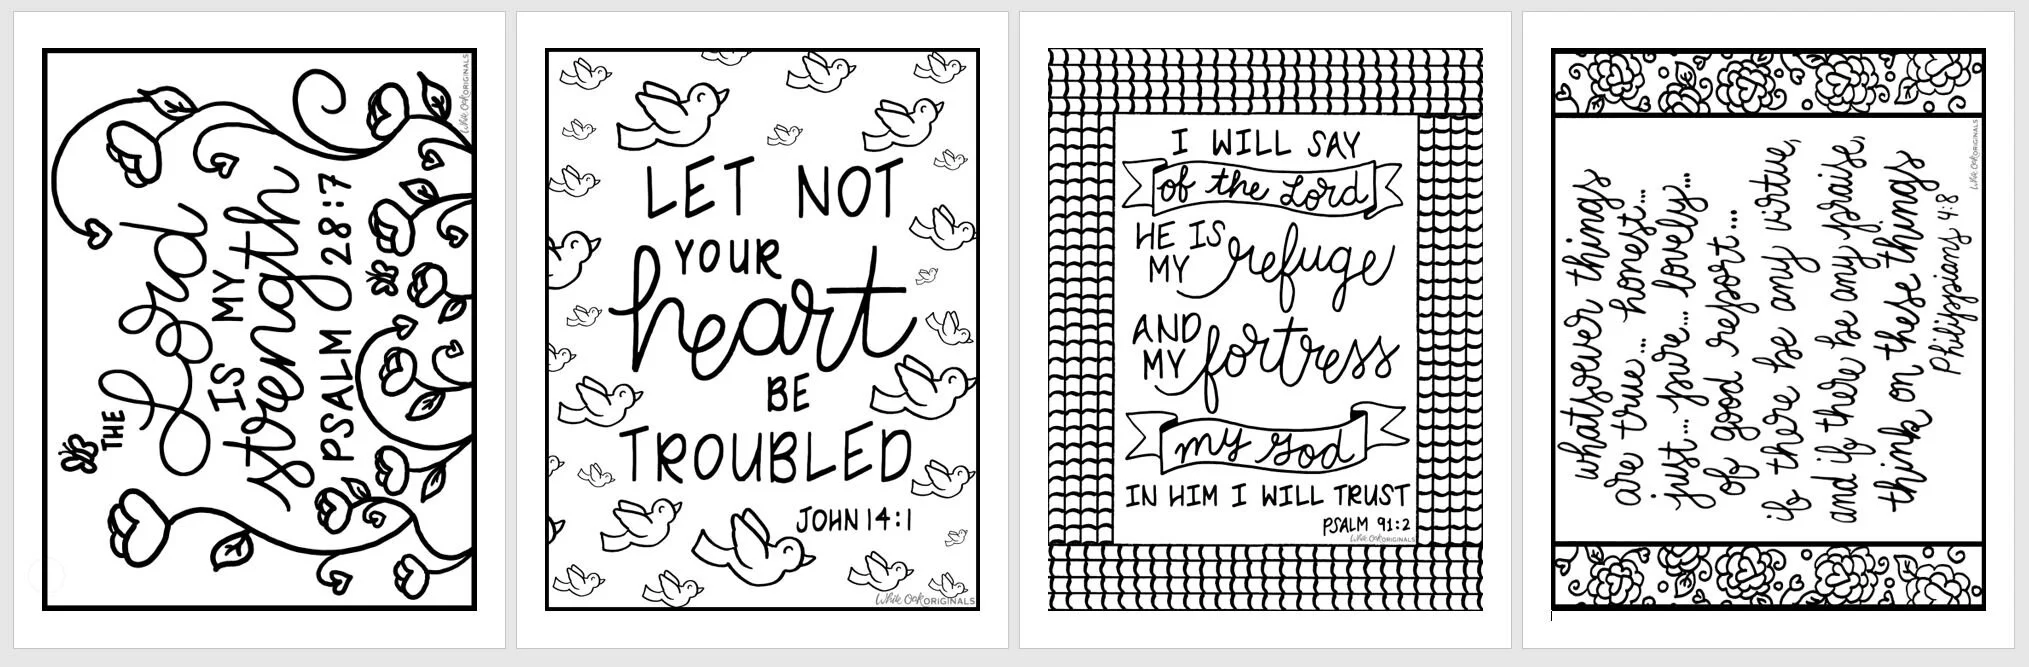 THE Lord
IS MY
strength
PSALM 28:7
White Oak ORIGINALS
LET NOT
YOUR
heart
BE
TROUBLED
JOHN 14:1
White Oak ORIGINALS
I WILL SAY
of the Lord
HE IS
MY refuge
AND
MY fortress
my God
IN HIM I WILL TRUST
PSALM 91:2
White Oak ORIGINALS
whatsoever things
are true... honest...
just... pure... lovely...
of good report...
if there be any virtue,
and if there be any praise,
think on these things
Philippians 4:8
White Oak ORIGINALS